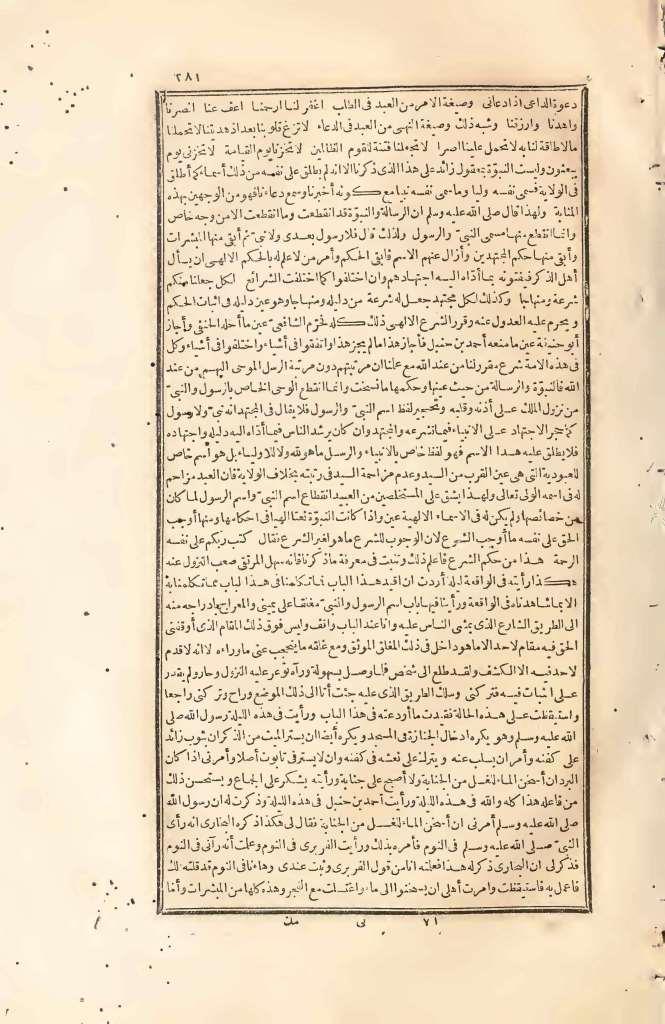 ٢٨١
دعوة الداعى اذا دعانى وصيغة الامر من العبد فى الطلب اغفر لنا ارحمنا اعف عنا انصرنا
واهدنا وارزقنا وشبه ذلك وصيغة النهى من العبد فى الدعاء لا تزغ قلوبنا بعد اذ هديتنا لا تحملنا
مالا طاقة لنا به لا تحمل علينا اصرا لا تجعلنا فتنة للقوم الظالمين لا تخزنا يوم القيامة لا تخزنى يوم
يبعثون وليست النبوّة بمعقول زائد على هذا الذى ذكرنا الا انه لم يطلق على نفسه من ذلك اسما كما أطلق
فى الولاية فسمى نفسه وليا وما سمى نفسه نبيا مع كونه أخبرنا وسمع دعاءنا فهو من الوجهين بهذه
المثابة ولهذا قال صلى الله عليه وسلم ان الرسالة والنبوّة قد انقطعت وما انقطعت الا من وجه خاص
وانما انقطع منها مسمى النبىّ والرسول ولذلك قال فلا رسول بعدى ولا نبىّ ثم أبقى منها المبشرات
وأبقى منها حكم المجتهدين وأزال عنهم الاسم فابقى الحكم وأمر من لا علم له بالحكم الالهى ان يسأل
أهل الذكر فيفتونه بما أداه اليه اجتهادهم وان اختلفوا كما اختلفت الشرائع لكل جعلنا منكم
شرعة ومنهاجا وكذلك لكل مجتهد جعل له شرعة من دليله ومنهاجا وهو عين دليله فى اثبات الحكم
ويحرم عليه العدول عنه وقرر الشرع الالهى ذلك كله فحرّم الشافعىّ عين ما أحله الحنفى وأجاز
أبو حنيفة عين ما منعه أحمد بن حنبل فأجاز هذا ما لم يجز هذا واتفقوا فى أشياء واختلفوا فى أشياء وكل
فى هذه الامّة شرع مقرر لنا من عند الله مع علمنا ان مرتبتهم دون مرتبة الرسل الموحى اليهم من عند
الله فالنبوّة والرسالة من حيث عينها وحكمها ما نسخت وانما انقطع الوحى الخاص بالرسول والنبىّ
من نزول الملك على أذنه وقلبه وتحجير لفظ اسم النبىّ والرسول فلا يقال فى المجتهد انه نبىّ ولا رسول
كما حجر الاجتهاد على الانبياء فيما تشرعه والمجتهد وان كان يرشد الناس فيما أداه اليه دليله واجتهاده
فلا يطلق عليه هذا الاسم فهو لفظ خاص بالانبياء والرسل ما هو لله ولا للاولياء بل هو اسم خاص
للعبودية التى هى عين القرب من السيد وعدم مزاحمة السيد فى رتبته بخلاف الولاية فان العبد مزاحم
له فى اسمه الولى تعالى ولهذا يشق على المستخلصين من العبيد انقطاع اسم النبىّ واسم الرسول لما كان
من خصائصها ولم يكن له فى الاسماء الالهية عين واذا كانت النبوّة نعتا الهيا فى احكامها ومنها أوجب
الحق على نفسه ما أوجب الشرع لان الوجوب للشرع ما هو لغير الشرع فقال كتب ربكم على نفسه
الرحمة هذا من حكم الشرع فاعلم ذلك وتثبت فى معرفة ما ذكرنا فانه سهل المرتقى صعب النزول عنه
هكذا رأيته فى الواقعة ليلة أردت ان اقيد هذا الباب فما تكلمنا فى هذا الباب بما تكلمنا به
الا بما شاهدناه فى الواقعة ورأينا فيها باب اسم الرسول والنبىّ مغلقا على يمينى والمعراج بها درّاجه منه
الى الطريق الشارع الذى يمشى الناس عليه وانا عند الباب واقف وليس فوق ذلك المقام الذى أوقفنى
الحق فيه مقام لاحد الا ما هو داخل فى ذلك المغلق الموثق ومع غلقه ما ينحجب عنى ما وراءه لا انه لا قدم
لاحد فيه الا الكشف ولقد طلع الى شخص فلما وصل بسهولة ورآه توعر عليه النزول وحار ولم يقدر
على اثبات فيه فتركنى وسلك الطريق الذى عليه جئت أنا الى ذلك الموضع وراح وتركنى راجعا
واستيقظت على هذه الحالة فقيدت ما أودعته فى هذا الباب ورأيت فى هذه الليلة رسول الله صلى
الله عليه وسلم وهو يكره ادخال الجنازة فى المسجد ويكره أيضا ان يستر الميت من الذكران بثوب زائد
على كفنه وأمر ان يسلب عنه ويترك على نعشه فى كفنه وان لا يستر فى تابوت أصلا وأمرنى اذا كان
البرد ان أسخن الماء للغسل من الجنابة ولا أصبح على جنابة ورأيته يشكر على الجماع ويستحسن ذلك
من فاعله هذا كله والله فى هذه الليلة ورأيت أحمد بن حنبل فى هذه الليلة وذكرت له ان رسول الله
صلى الله عليه وسلم أمرنى ان أسخن الماء للغسل من الجنابة فقال لى هكذا ذكره البخارى انه رأى
النبىّ صلى الله عليه وسلم فى النوم فأمره بذلك ورأيت الفربرى فى النوم وعلمت أنه رآنى فى النوم
فذكر لى ان البخارى ذكر له هذا فعلته انا من قول الفربرى وثبت عندى وها انا فى النوم قد قلته لك
فاعمل به فاستيقظت وامرت أهلى ان يسخنوا الى ماء واغتسلت مع الفجر وهذه كلها من المبشرات وأما
٧١ نى مك